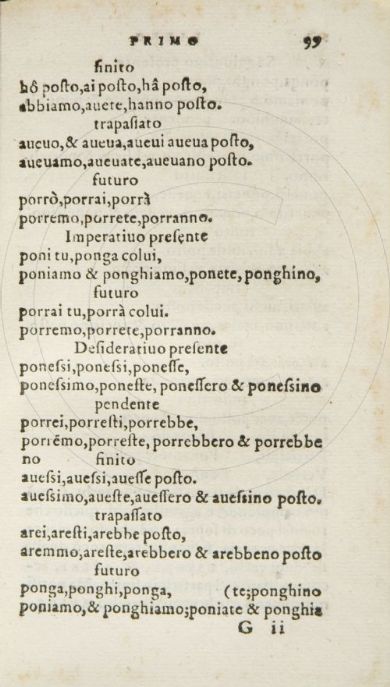 PRIMO 99
finito
hô posto,ai posto,hâ posto,
abbiamo,auete,hanno posto.
trapassato
aueuo,& aueua,aueui aueua posto,
aueuamo,aueuate,aueuano posto.
futuro
porrò,porrai,porrà
porremo,porrete,porranno.
Imperatiuo presente
poni tu,ponga colui,
poniamo & ponghiamo,ponete,ponghino,
futuro
porrai tu,porrà colui.
porremo,porrete,porranno.
Desideratiuo presente
ponessi,ponessi,ponesse,
ponessimo,poneste, ponessero & ponessino
pendente
porrei,porresti,porrebbe,
porrēmo,porreste, porrebbero & porrebbe
no finito
auessi,auessi,auesse posto.
auessimo,aueste,auessero & auessino posto.
trapassato
arei,aresti,arebbe posto,
aremmo,areste,arebbero & arebbeno posto
futuro
ponga,ponghi,ponga, (te;ponghino
poniamo,& ponghiamo;poniate & ponghia
G ii